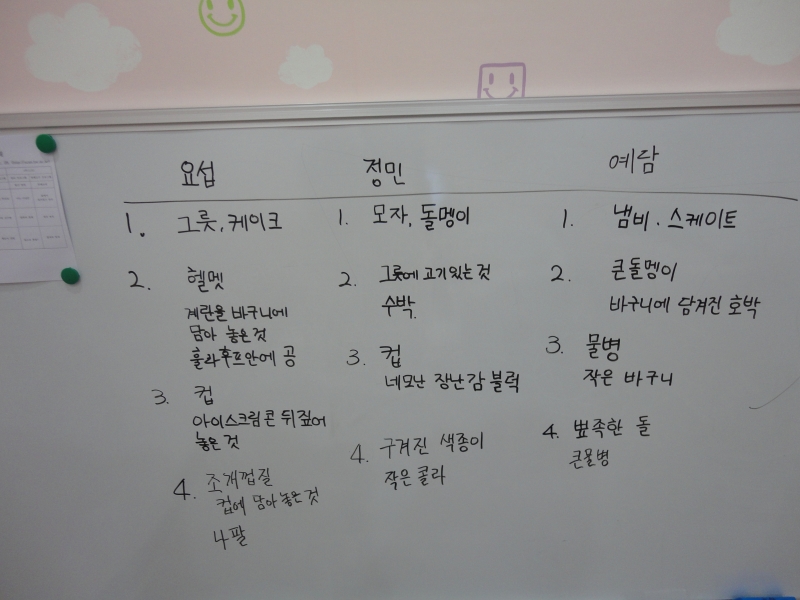 요섭
1. 그릇, 케이크
2. 헬멧
계란을 바구니에
담아 놓은것
훌라후프안에 공
3. 컵
아이스크림콘 뒤짚어
놓은것
4. 조개껍질
컵에 담아 놓은 것
나팔
정민
1. 모자, 돌멩이
2. 그릇에 고기있는 것
수박.
3. 컵
네모난 장난감 블럭
4. 구겨진 색종이
작은 콜라
예담
1. 냄비. 스케이트
2. 큰돌멩이
바구니에 담겨진 호박
3. 물병
작은 바구니
4. 뾰족한 돌
큰물병